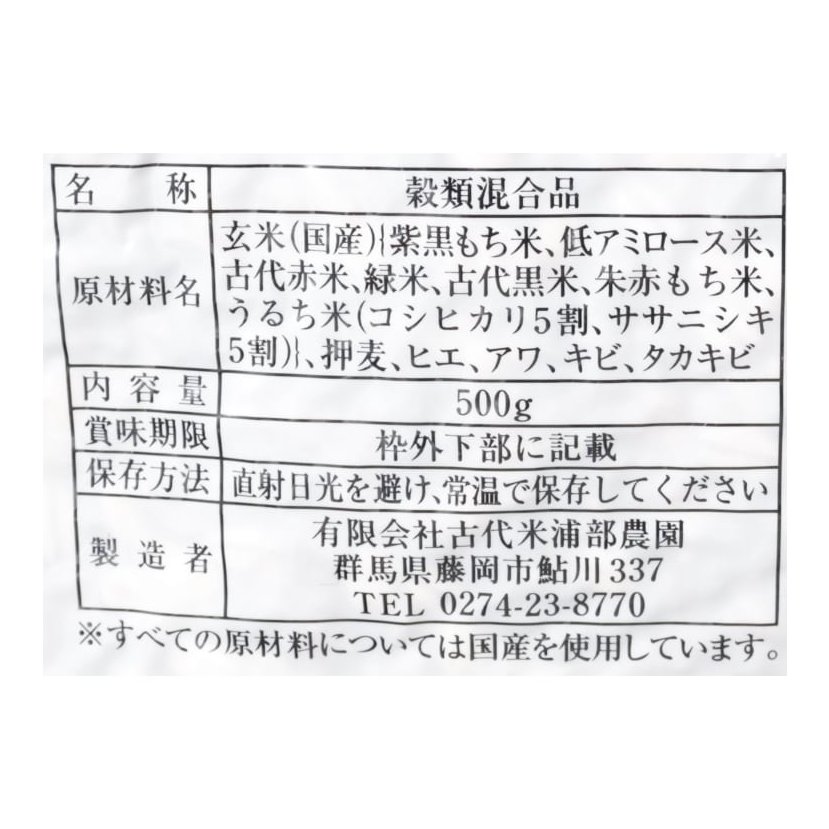 名称 穀類混合品
原材料名 玄米(国産){紫黒もち米、低アミロース米、
古代赤米、緑米、古代黒米、朱赤もち米、
うるち米(コシヒカリ5割、ササニシキ
5割)}、押麦、ヒエ、アワ、キビ、タカキビ
内容量 500g
賞味期限 枠外下部に記載
保存方法 直射日光を避け、常温で保存してください
製造者 有限会社古代米浦部農園
群馬県藤岡市鮎川337
TEL 0274-23-8770
※すべての原材料については国産を使用しています。